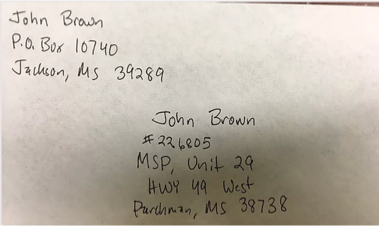 John Brown
P.O. Box 10740
Jackson, MS 39289
John Brown
#226805
MSP, Unit 29
HWY 49 West
Parchman, MS 38738